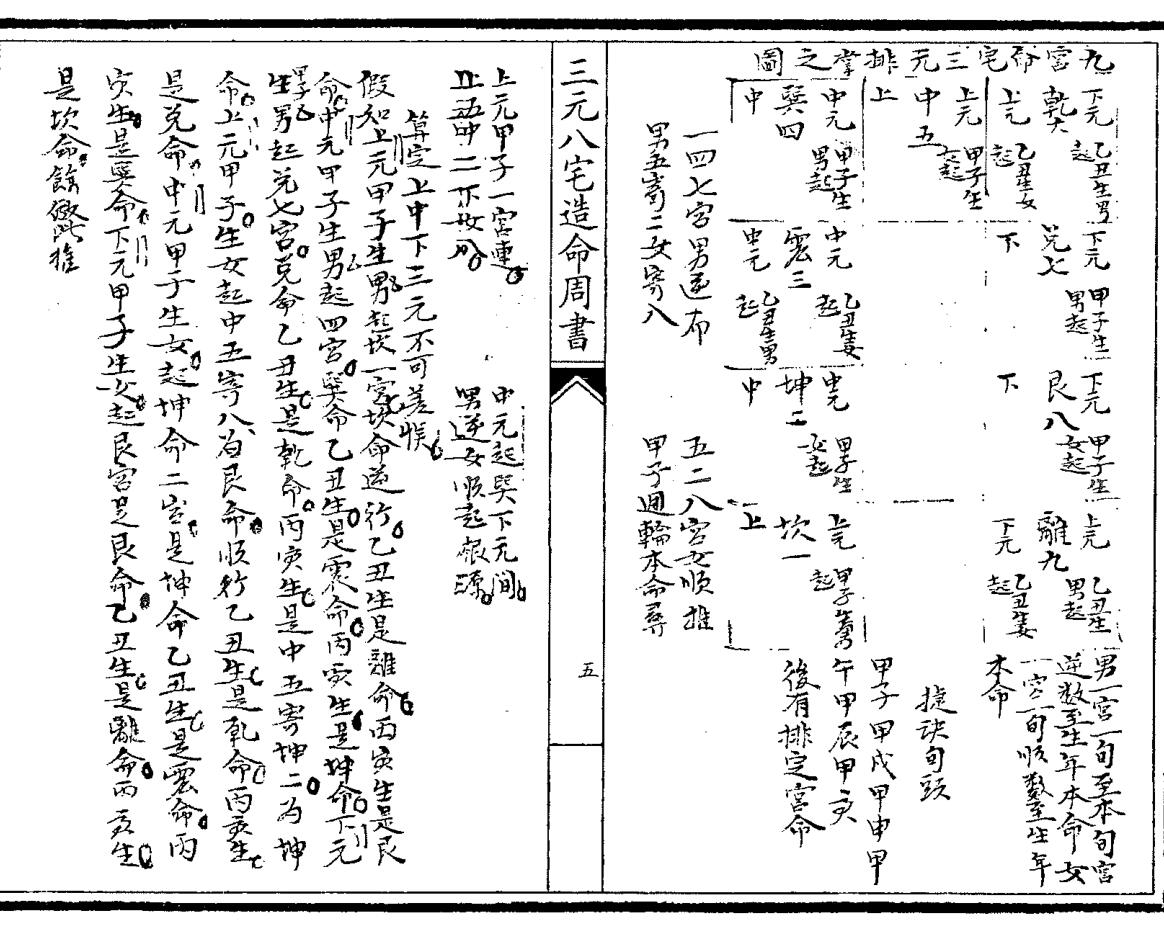 九宮命宅三元排掌之圖
下元 乙丑生男起
乾六
上元 乙丑生女起
上元 甲子生女起
中五
上
中元 甲子生男起
巽四
中
下元 甲子生男起
兌七
下
中元 乙丑生女起
震三
中元 乙丑生男起
下元 甲子生女起
艮八
下
中元 甲子生女起
坤二
中
上元 乙丑生男起
離九
下元 乙丑生女起
上元 甲子生男起
坎一
上
男一宮一旬至本旬宮
逆数至生年本命女
一宮一旬順數至生年
本命
捷訣旬頭
甲子甲戌甲申甲
午甲辰甲寅
後有排定宮命
一四七宮男逆布 五二八宮女順推
男五寄二女寄八 甲子週輪本命尋
三元八宅造命周書
五
上元甲子一宮連 中元起巽下元間
五中二 男逆女順起根源
算定上中下三元不可差悞
假如上元甲子生男起坎一宮坎命逆行乙丑生是離命丙寅生是艮
命中元甲子生男起四宮巽命乙丑生是震命丙寅生是坤命下元
甲子生男起兌七宮兌命乙丑生是乾命丙寅生是中五寄坤二为坤
命上元甲子生女起中五寄八为艮命順行乙丑生是乾命丙寅生
是兌命中元甲子生女起坤命二宮是坤命乙丑生是震命丙
寅生是巽命下元甲子生女起艮宮是艮命乙丑生是離命丙寅生
是坎命餘倣此推